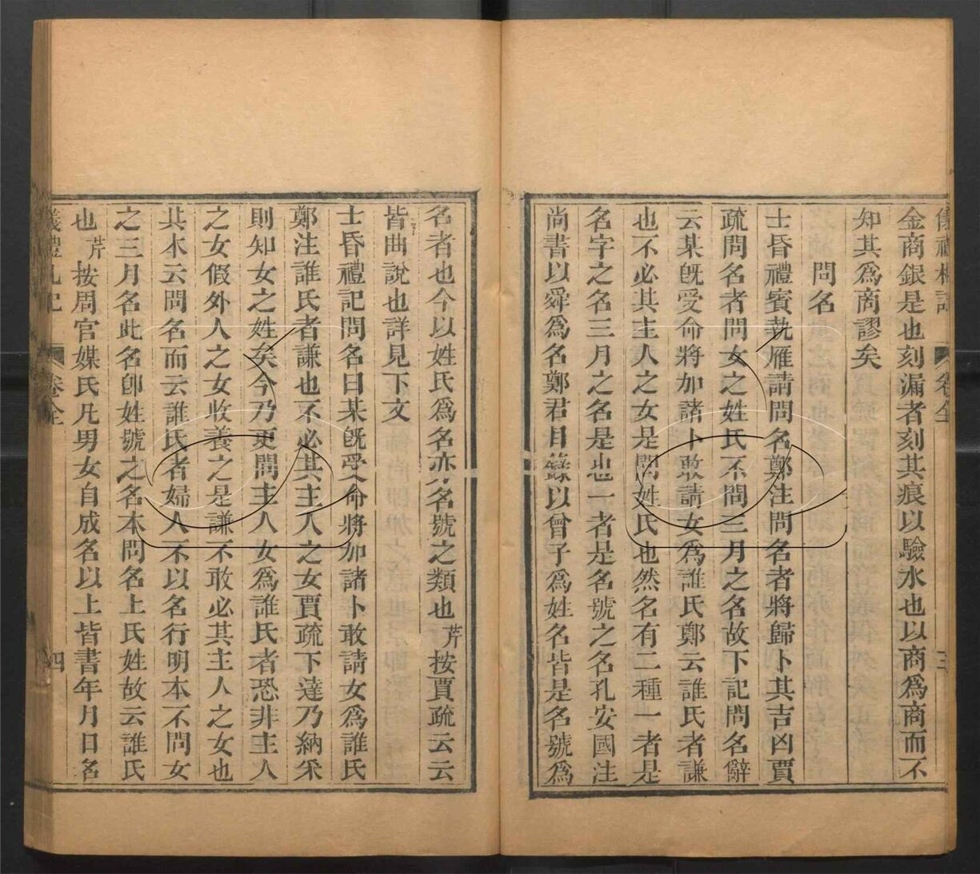 金商銀是也刻漏者刻其痕以驗水也以商為商而不
知其為商謬矣
問名
士昏禮賓執雁請問名鄭注問名者將歸卜其吉凶賈
疏問名者問女之姓氏不問三月之名故下記問名辭
云某旣受命將加諸卜敢請女為誰氏鄭云誰氏者謙
也不必其主人之女是問姓氏也然名有二種一者是
名字之名三月之名是也一者是名號之名孔安國注
尚書以舜為名鄭君目錄以曾子為姓名皆是名號為
名者也今以姓氏為名亦名號之類也芹按賈疏云云
皆曲說也詳見下文
士昏禮記問名曰某旣受命將加諸卜敢請女為誰氏
鄭注誰氏者謙也不必其主人之女賈疏下達乃納采
則知女之姓矣今乃更問主人女為誰氏者恐非主人
之女假外人之女收養之是謙不敢必其主人之女也
其本云問名而云誰氏者婦人不以名行明本不問女
之三月名此名卽姓號之名本問名上氏姓故云誰氏
也芹按周官媒氏凡男女自成名以上皆書年月日名
卷全
四
卷全
三